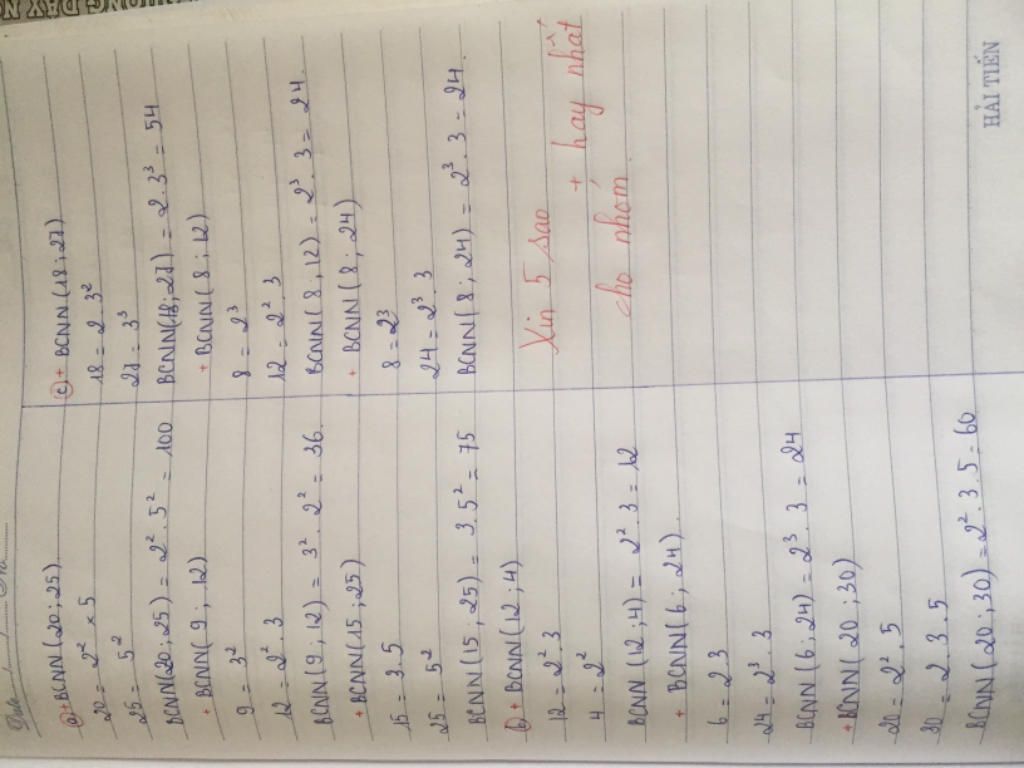 Date
a) + BCNN (20 ; 25)
20 = 2² × 5
25 = 5²
BCNN (20 ; 25) = 2² . 5² = 100
+ BCNN (9 ; 12)
9 = 3²
12 = 2² . 3
BCNN (9 ; 12) = 3² . 2² = 36.
+ BCNN (15 ; 25)
15 = 3.5
25 = 5²
BCNN (15 ; 25) = 3.5² = 75
b) + BCNN (12 ; 4)
12 = 2² . 3
4 = 2²
BCNN (12 ; 4) = 2² . 3 = 12
+ BCNN (6 ; 24).
6 = 2.3
24 = 2³ . 3
BCNN (6 ; 24) = 2³ . 3 = 24
+ BCNN (20 ; 30)
20 = 2² . 5
30 = 2.3.5
BCNN (20 ; 30) = 2² . 3 . 5 = 60
c) + BCNN (18 ; 27)
18 = 2 . 3²
27 = 3³
BCNN (18 ; 27) = 2 . 3³ = 54
+ BCNN (8 ; 12)
8 = 2³
12 = 2² . 3
BCNN (8 ; 12) = 2³ . 3 = 24.
+ BCNN (8 ; 24)
8 = 2³
24 = 2³ . 3
BCNN (8 ; 24) = 2³ . 3 = 24.
Xin 5 sao
+ hay nhất
cho nhóm
HẢI TIẾN